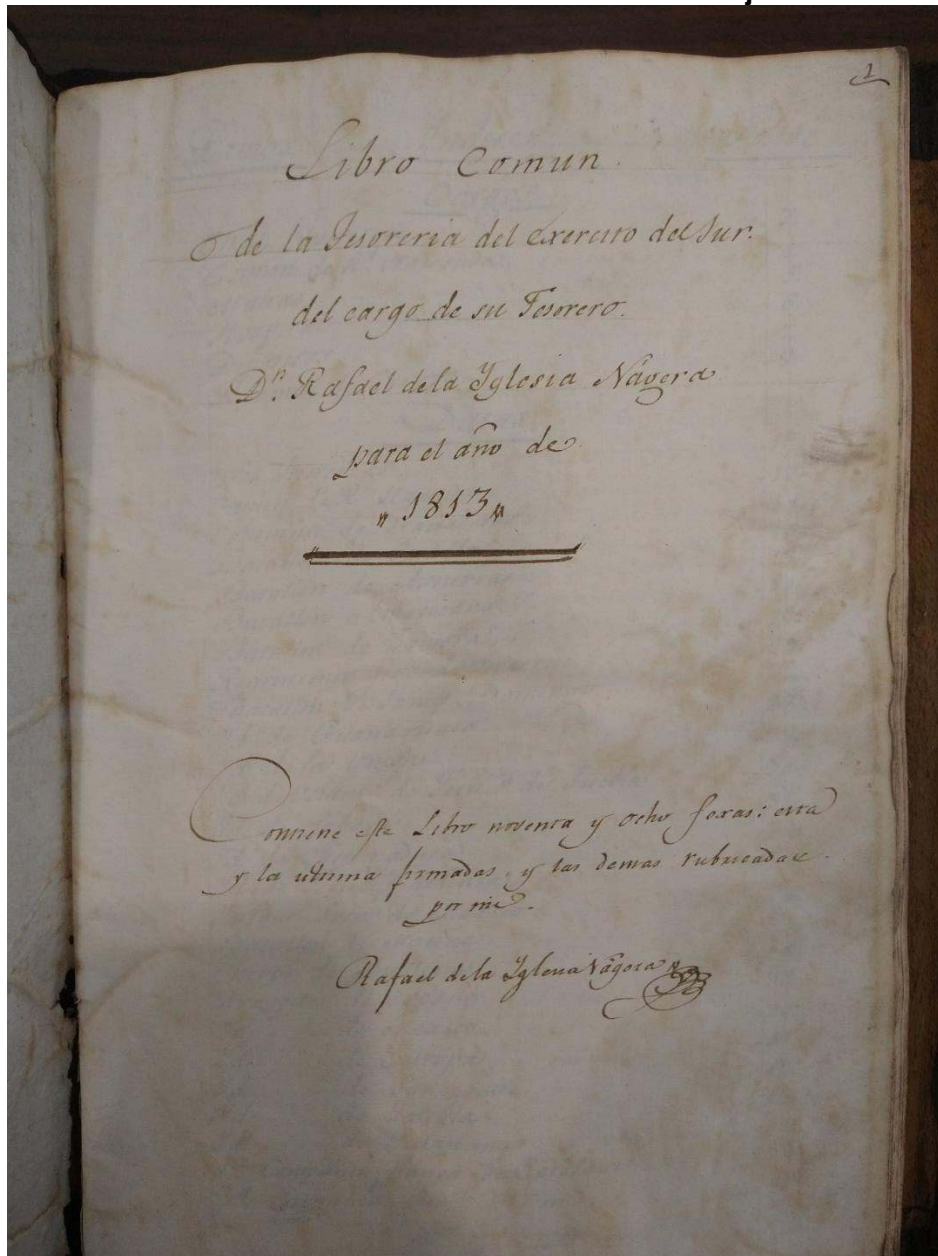 1
Libro Comun
de la Tesoreria del Exercito del Sur.
del cargo de su Tesorero.
Dn. Rafael de la Yglesia Nágera
para el año de
" 1813 "
Contiene este Libro noventa y ocho foxas: esta
y la ultima firmadas y las demas rubricadas
por mi.
Rafael de la Yglesia Nágera